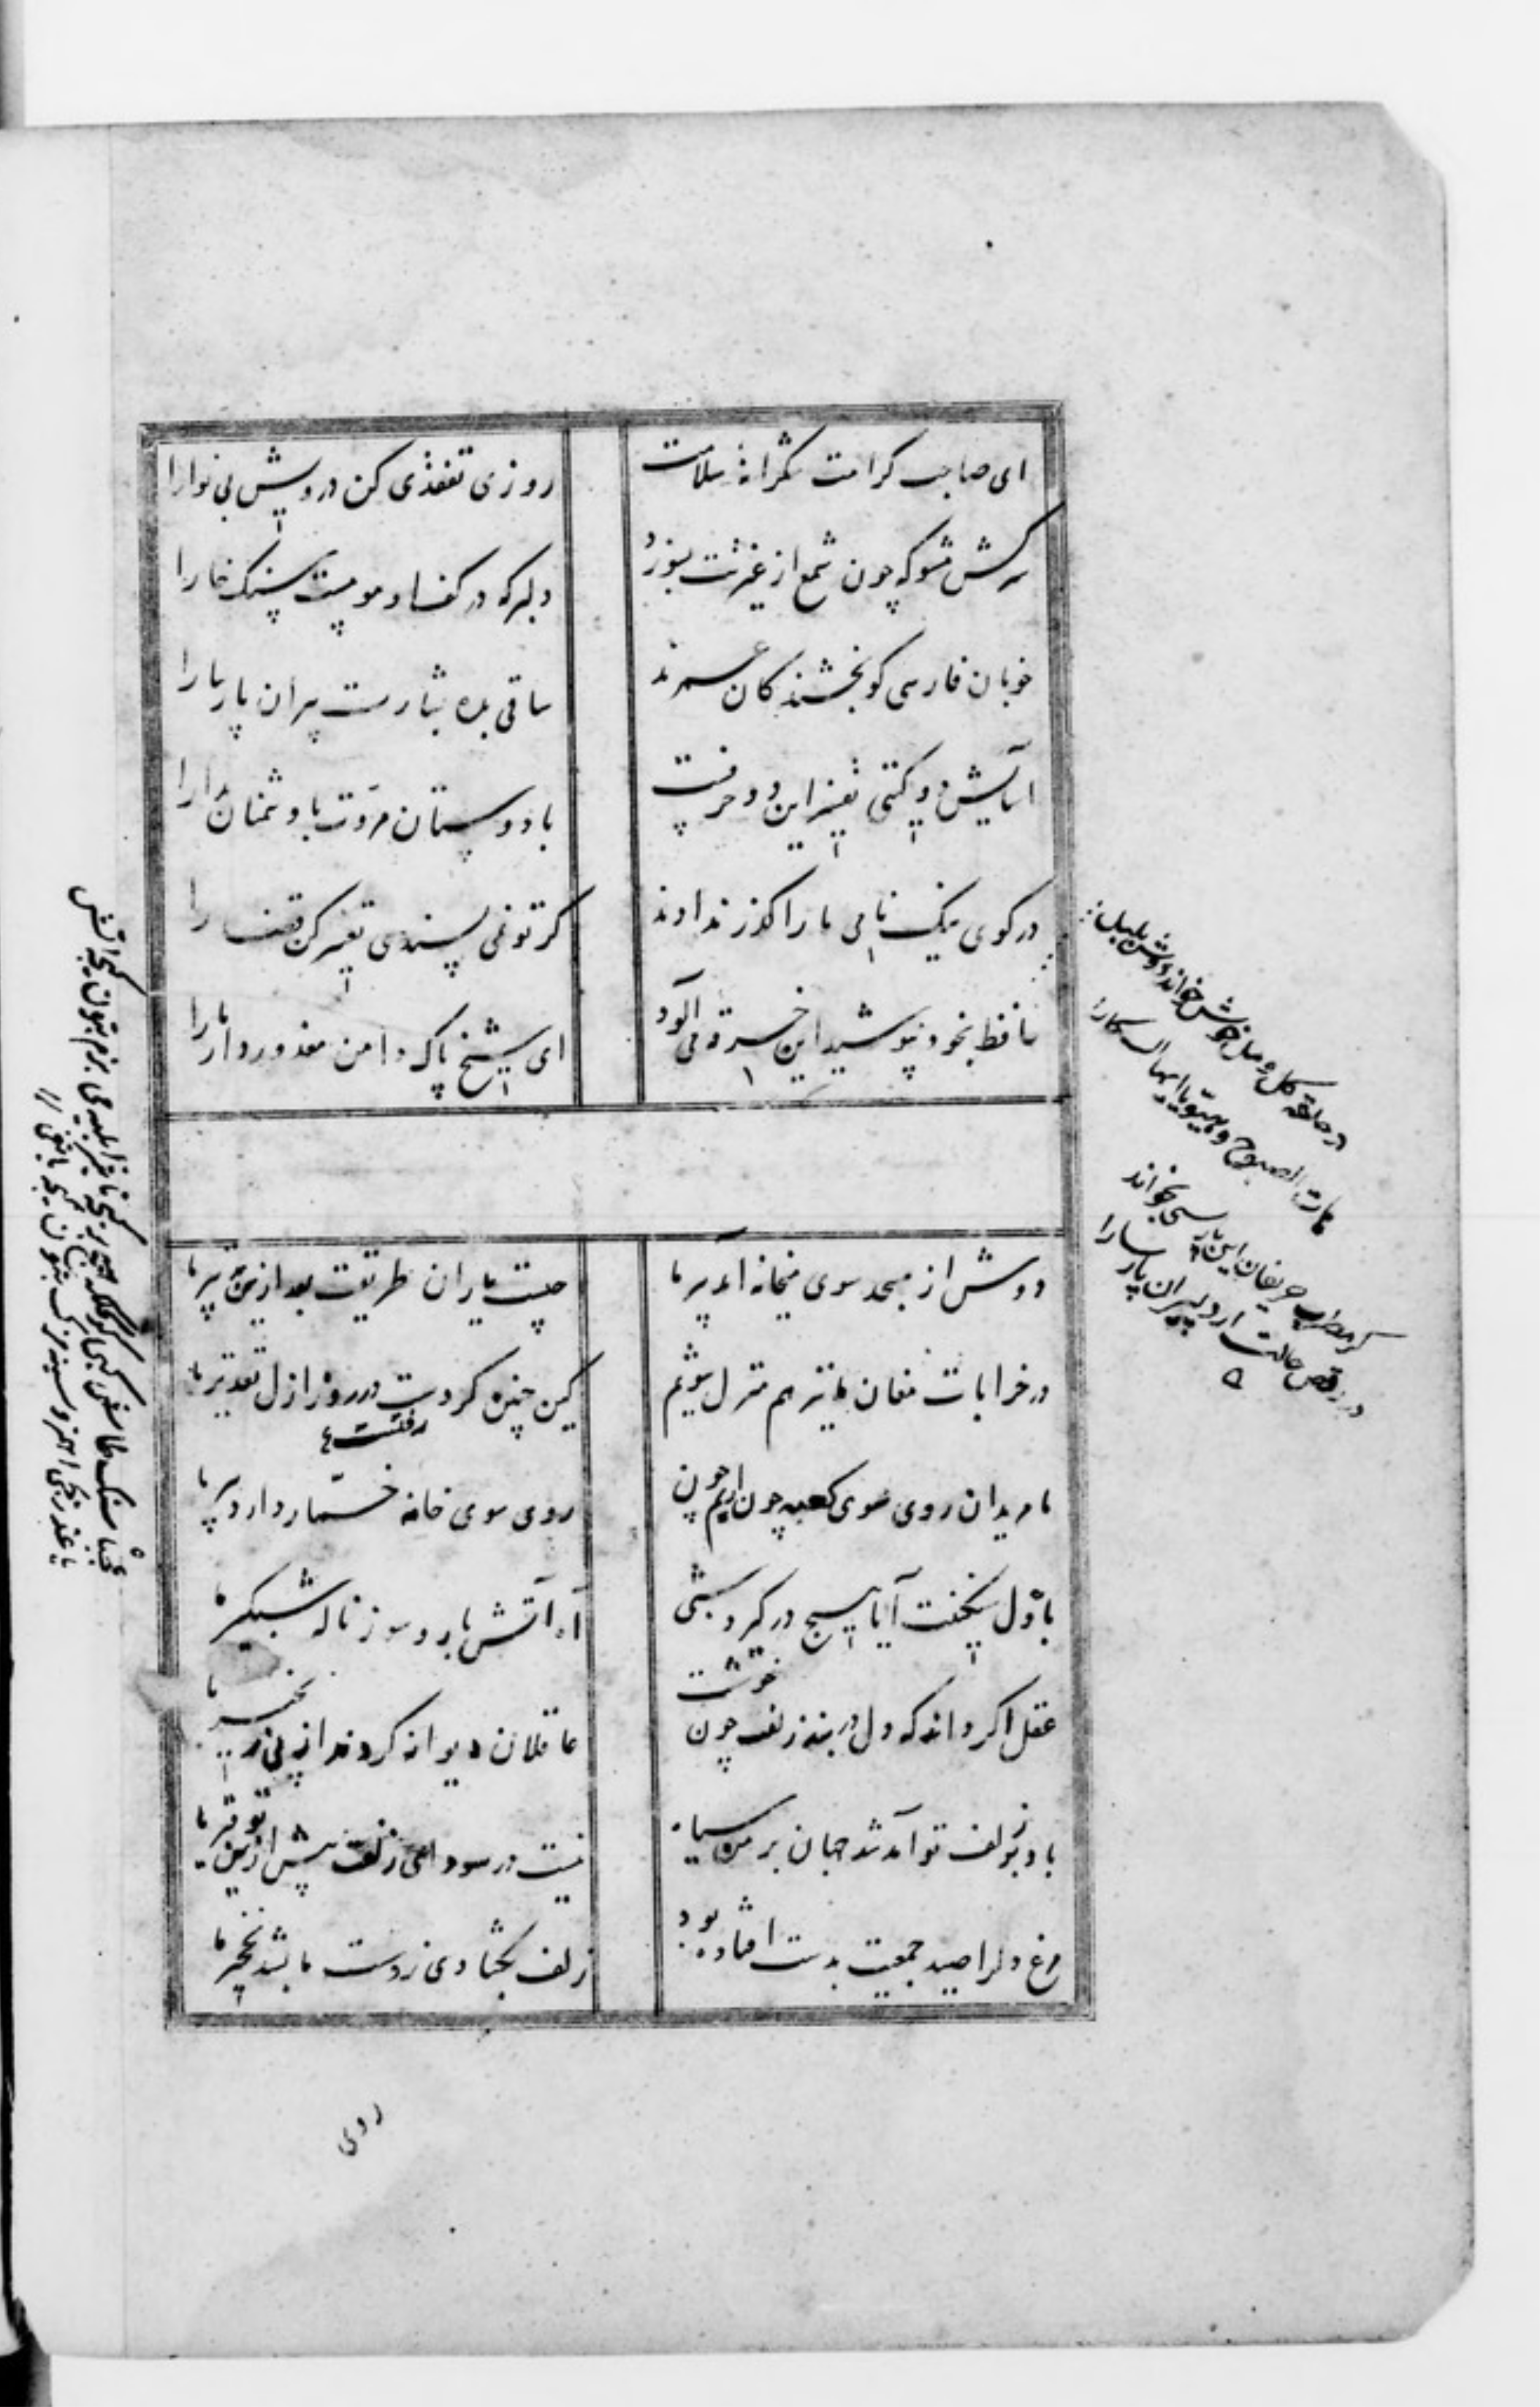 ای صاحب کرامت شکرانهٔ سلامت روزی تفقدی کن درویش بی نوارا
سرکش مشو که چون شمع از غیرتت بسوزد دلبر که در کف او مومست سنک خارا
خوبان فارسی کو بخشندکان عمرند ساقی بده بشارت پیران پارسا را
اسایش دو کیتی تفسیر این دو حرفست با دوستان مروّت با دشمنان مدارا
در کوی نیک نامی ما را کذر ندادند کر تو نمی پسندی تغییر کن قضا را
حافظ بخود نپوشید این خرقه می آلود ای شیخ پاک دامن معذور دار ما را
دوش از مسجد سوی میخانه آمد پیر ما چیست یاران طریقت بعد ازین تدبیر ما
در خرابات مغان ما نیز هم منزل شویم کین چنین کردست در روز ازل تقدیر ما
رفتست
ما مریدان روی سوی کعبه چون اریم چون روی سوی خانه خمّار دارد پیر ما
با دل سنکینت آیا هیچ در کیرد شبی آه آتش بار و سوز ناله شبکیر ما
عقل اکر داند که دل در بند زلفت چون خوشت عاقلان دیوانه کردند از پی زنجیر ما
باد بر زلف تو آمد شد جهان بر من سیاه نیست در سودای زلفت بیش ازین توفیر ما
مرغ دلرا صید جمعیت بدست افتاده بود زلف بکشادی ز دست ما بشد نخجیر ما
در حلقه کل و مل خوش خواند دوش بلبل
هات الصبوح وهبّو یا ایها السکارا
کر مطرب حریفان این پارسی بخواند
در رقص حالت ارد پیران پارسا را
روی